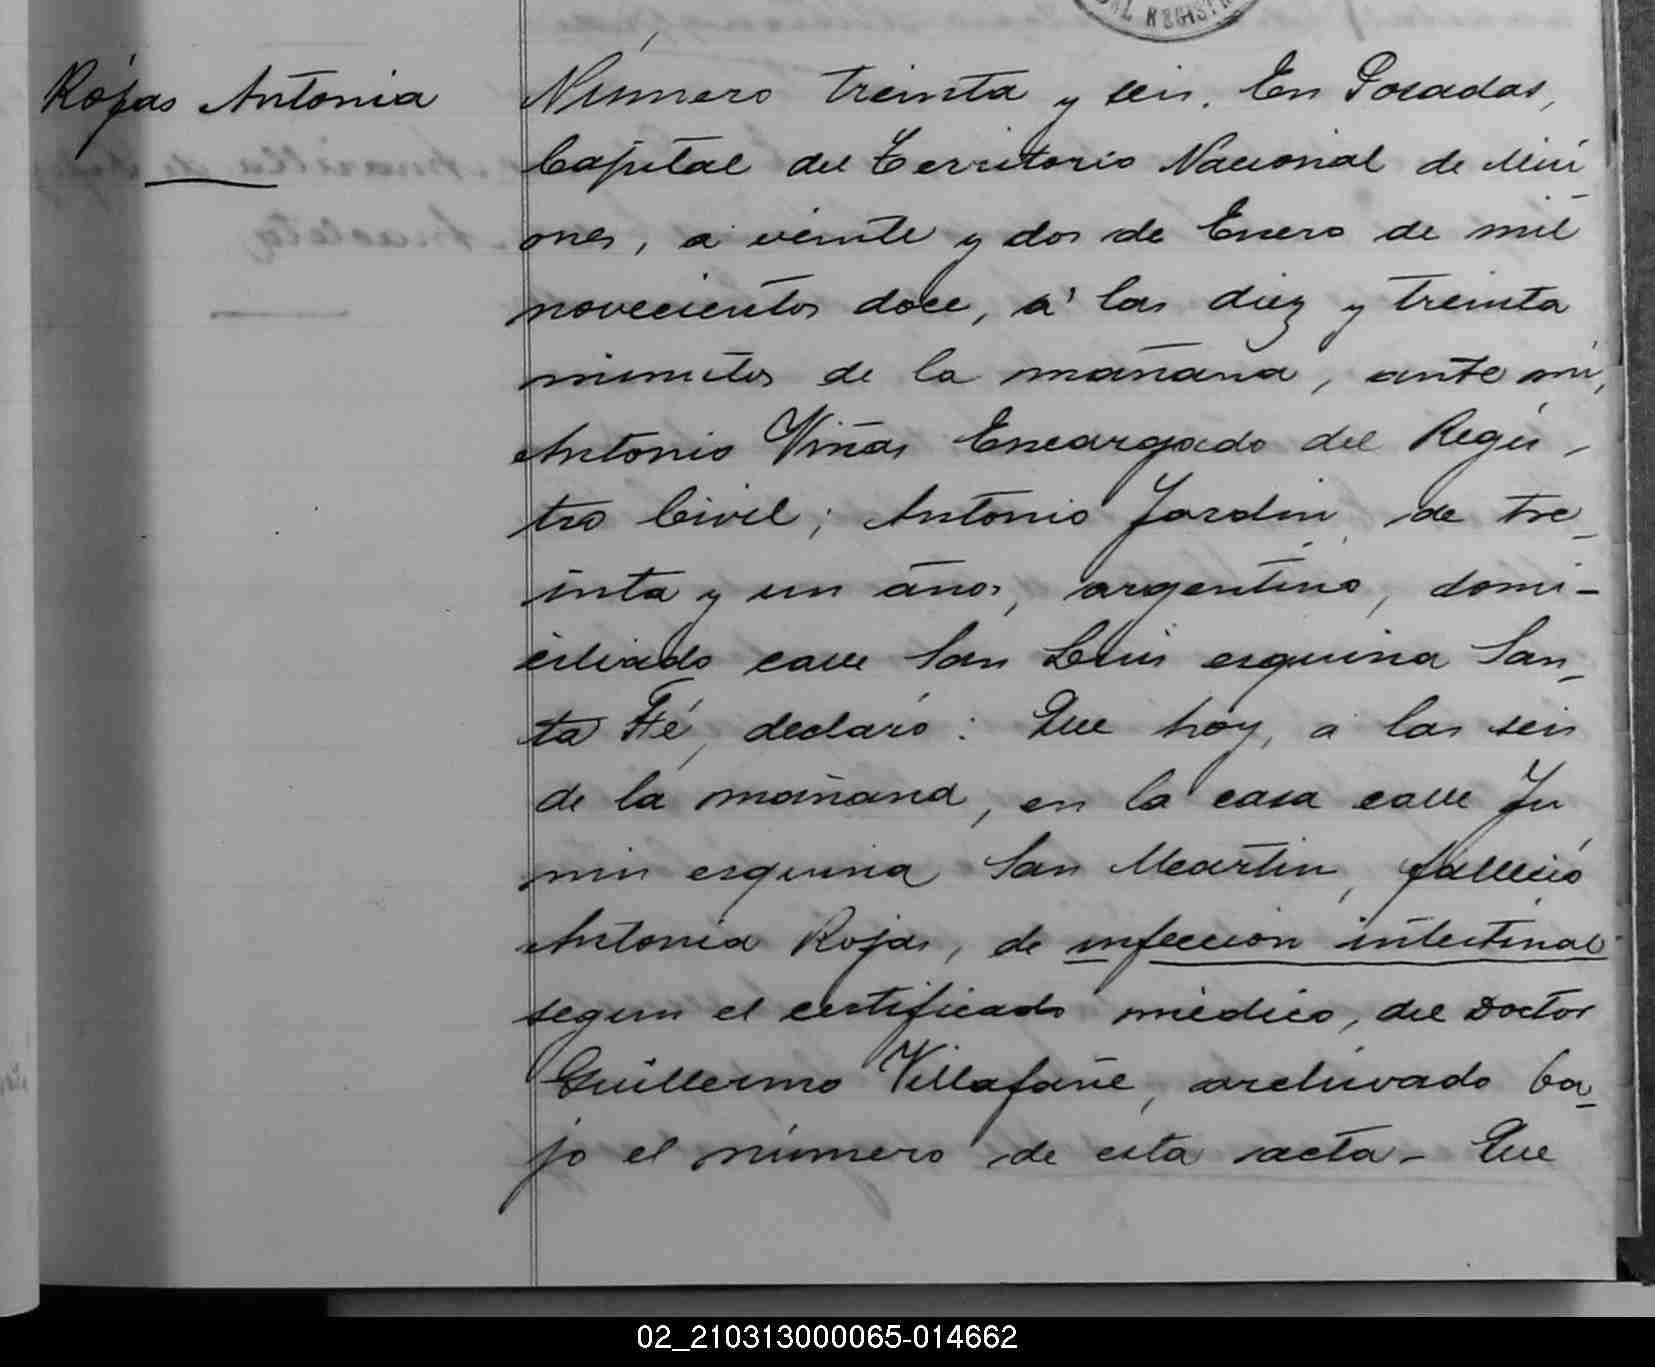 Rojas Antonia
Número treinta y seis. En Posadas,
Capital del Territorio Nacional de Misi
ones, a veinte y dos de Enero de mil
novecientos doce, á las diez y treinta
minutos de la mañana, ante mí,
Antonio Viñas Encargado del Regis-
tro Civil; Antonio Jardin, de tre-
inta y un años, argentino, domi-
ciliado calle San Luis esquina San-
ta Fé, declaró: Que hoy, a las seis
de la mañana, en la casa calle Ju
nin esquina San Martin, falleció
Antonia Rojas, de infeccion intestinal
segun el certificado médico, del Doctor
Guillermo Villafañe, archivado ba-
jo el número de esta acta- Que
02_210313000065-014662